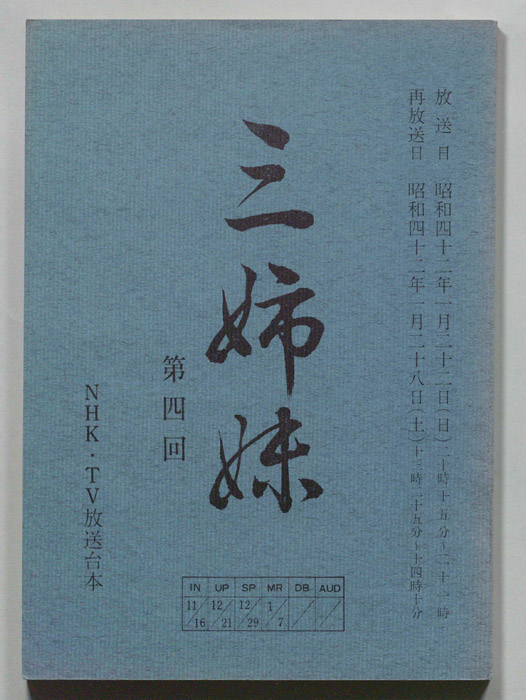 放送日 昭和四十二年一月二十二日(日)二十時十五分〜二十一時
再放送日 昭和四十二年一月二十八日(土)十三時二十五分〜十四時十分
三姉妹
第四回
NHK・TV放送台本
IN UP SP MR DB AUD
11/16 12/21 12/29 1/7 / /